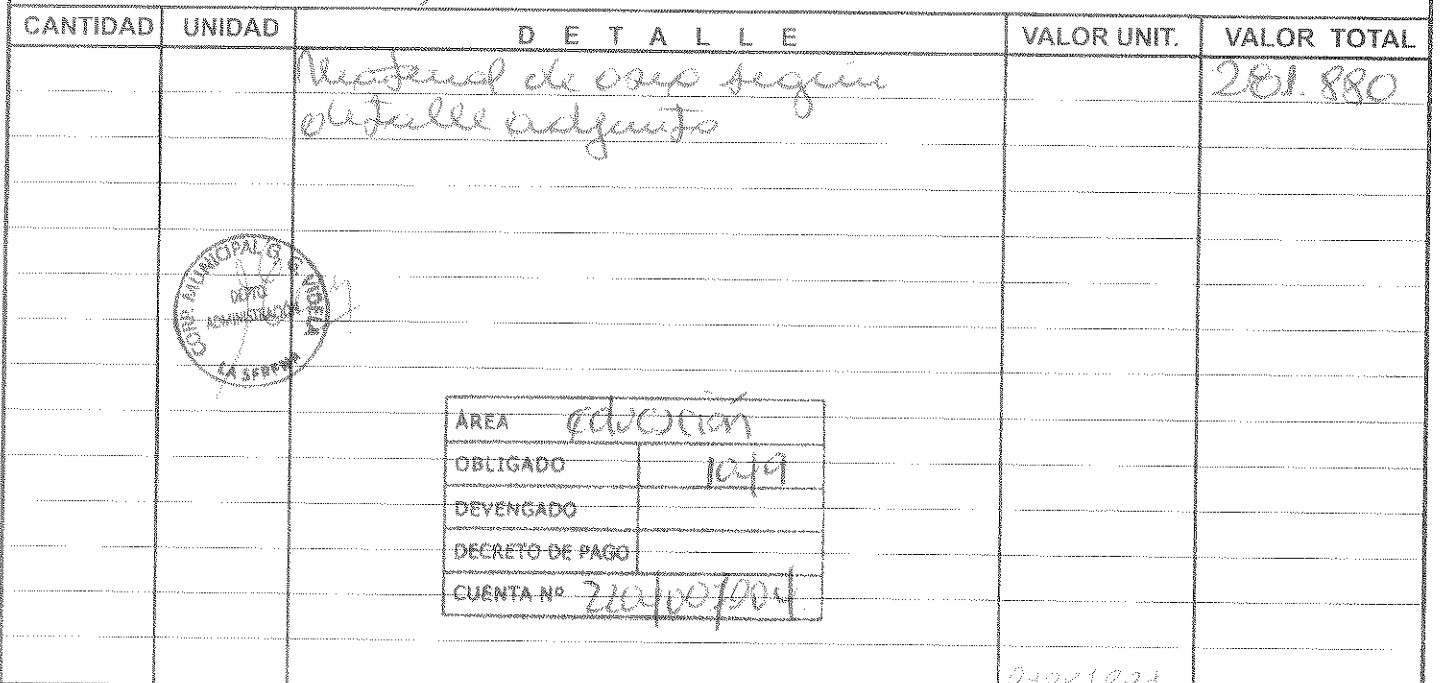 CANTIDAD UNIDAD D E T A L L E VALOR UNIT. VALOR TOTAL
Material de aseo según 281.880
detalle adjunto
CORP. MUNICIPAL G. G. VIDELA
DEPTO
ADMINISTRACIÓN
LA SERENA
ÁREA educación
OBLIGADO
DEVENGADO
DECRETO DE PAGO
CUENTA Nº